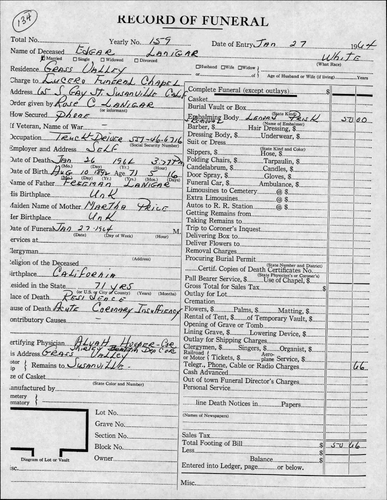 139
RECORD OF FUNERAL
Total No. Yearly No. 159 Date of Entry Jan 27 1964
Name of Deceased Edgar Lanigar White
Married Single Widowed Divorced Husband Wife Widow (What Race)
Residence Grass Valley Age of Husband or Wife (if living) Years
Charge to Lucero Funeral Chapel
Address W S Gay St. Susanville Cal
Order given by Rose C. Lanigar
How Secured Phone
If Veteran, of War
Occupation Truck Driver
(Social Security Number)
Employer and Address Self
Date of Death Jan 26 1964
Date of Birth Aug 10 1892 Age 71 5 16
Name of Father Freeman Lanigar
His Birthplace Unk
Maiden Name of Mother Martha Price
Her Birthplace Unk
Date of Funeral Jan 27-1964
(Date) (Day of Week) (Hour)
Services at
Clergyman
(Address)
Religion of the Deceased
Birthplace California
Resided in the State 71 yrs
(Years) (Months)
Place of Death Residence
Cause of Death Acute Coronary Insufficiency
Contributory Causes
Certifying Physician Alvah Hooper-Cor
His Address Grass Valley
Remains to Susanville
Size of Casket
(State Color and Number)
Manufactured by
Cemetery
Crematory
Lot No.
Grave No.
Section No.
Block No.
Owner
Diagram of Lot or Vault
Misc.
Complete Funeral (except outlays) $
Casket
Burial Vault or Box
(State Kind)
Embalming Body 50 00
(Name of Embalmer)
Barber, $ Hair Dressing, $
Dressing Body, $ Underwear, $
Suit or Dress
(State Kind and Color)
Slippers, $ Hose, $
Folding Chairs, $ Tarpaulin, $
Candelabrum, $ Candles, $
Door Spray, $ Gloves, $
Funeral Car, $ Ambulance, $
Limousines to Cemetery @ $
Extra Limousines @ $
Autos to R. R. Station @ $
Getting Remains from
Taking Remains to
Trip to Coroner's Inquest
Delivering Box to
Deliver Flowers to
Removal Charges
Procuring Burial Permit
Certif. Copies of Death Certificate
Pall Bearer Service, $ Use of Chapel, $
Gross Total for Sales Tax $
Outlay for Lot
Cremation
Flowers, $ Palms, $ Matting, $
Rental of Tent, $ of Temporary Vault, $
Opening of Grave or Tomb
Lining Grave, $ Lowering Device, $
Outlay for Shipping Charges
Clergymen, $ Singers, $ Organist, $
Railroad or Motor Tickets, $ Aeroplane Service, $
Telegr., Phone, Cable or Radio Charges 66
Cash Advanced
Out of town Funeral Director's Charges
Personal Service
line Death Notices in Papers
(Names of Newspapers)
Sales Tax
Total Footing of Bill $ 50 66
Less
Balance $
Entered into Ledger, page or below.
Misc.